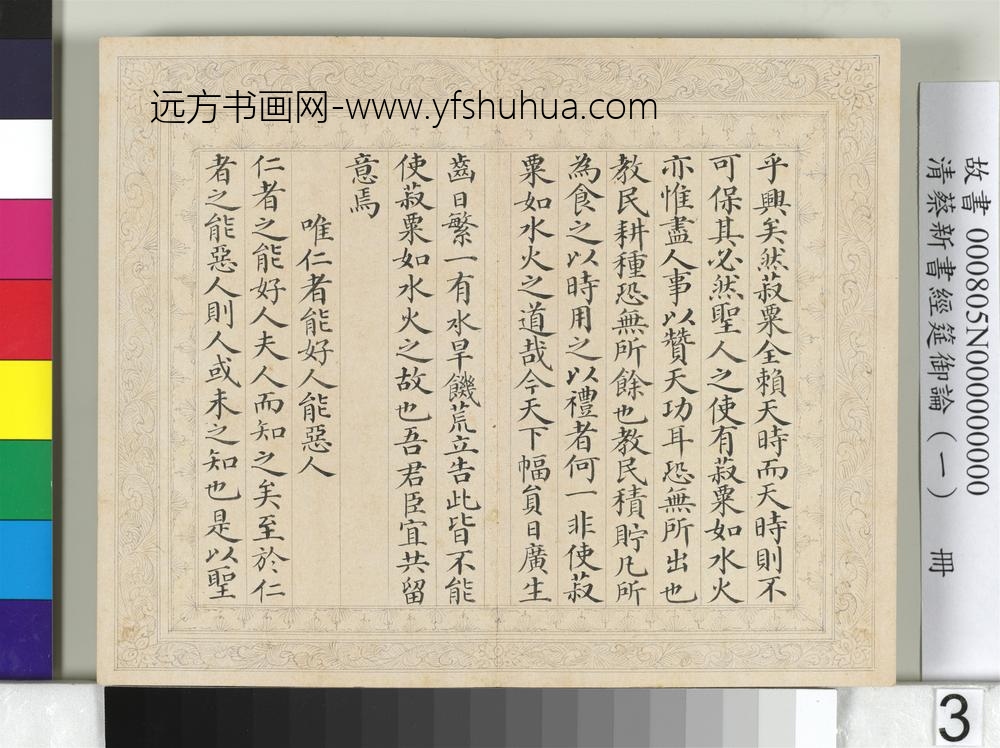 远方书画网-www.yfshuhua.com
乎興矣然菽粟全賴天時而天時則不
可保其必然聖人之使有菽粟如水火
亦惟盡人事以贊天功耳恐無所出也
教民耕種恐無所餘也教民積貯凡所
為食之以時用之以禮者何一非使菽
粟如水火之道哉今天下幅員日廣生
齒日繁一有水旱饑荒立告此皆不能
使菽粟如水火之故也吾君臣宜共留
意焉
唯仁者能好人能惡人
仁者之能好人夫人而知之矣至於仁
者之能惡人則人或未之知也是以聖
故書 000805N000000000
清蔡新書經筵御論(一) 冊
3